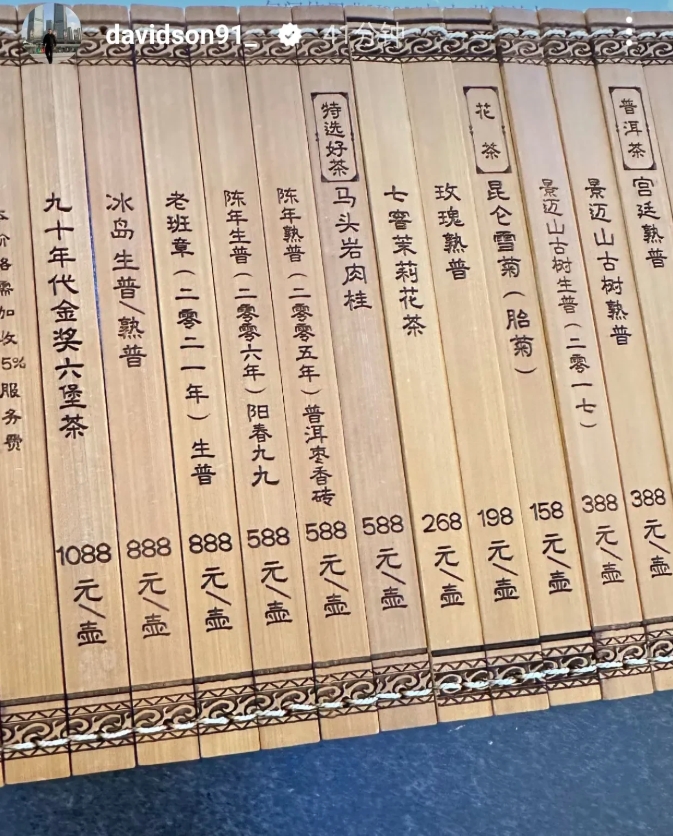 davidson91_ 41分钟
普洱茶
宫廷熟普
景迈山古树熟普 388元/壶
景迈山古树生普(二零一七) 388元/壶
花茶
昆仑雪菊(胎菊) 158元/壶
玫瑰熟普 198元/壶
七窨茉莉花茶 268元/壶
特选好茶
马头岩肉桂 588元/壶
陈年熟普(二零零五年)普洱枣香砖 588元/壶
陈年生普(二零零六年)阳春九九 588元/壶
老班章(二零二一年)生普 888元/壶
冰岛生普/熟普 888元/壶
九十年代金奖六堡茶 1088元/壶
需加收5%服务费